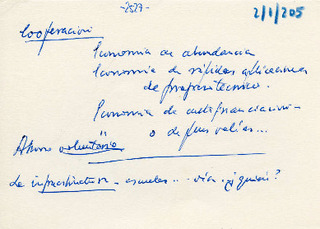 -2527-
2/1/205
Cooperación
Economia de abundancia
Economia de rápidas aplicaciones
de progreso técnico.
Economia de autofinanciación-
o de plus valías...
Ahorro voluntario
La infraestructura - escuelas... vías. ¿quién?